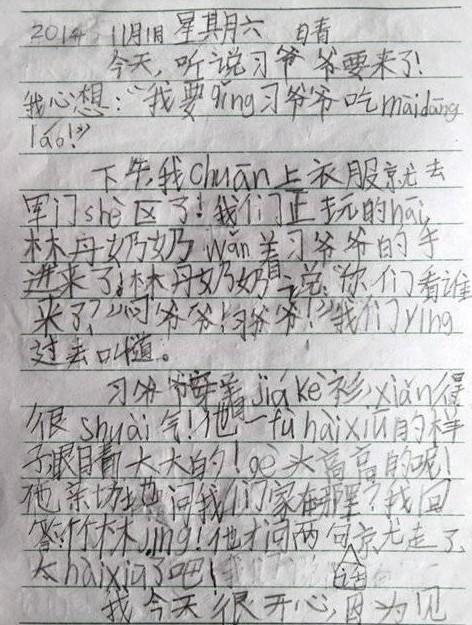 2014 11月1日 星其月六 日青
今天,听说习爷爷要来了!
我心想:“我要qǐng习爷爷吃màidāng
láo!”
下午,我chuān上衣服就去
军门shè区了!我们正玩的hāi,
林丹奶奶wǎn着习爷爷的手
进来了!林丹奶奶说:“你们看谁
来了?”“习爷爷!习爷爷!”我们yíng
过去叫道。
习爷爷穿着jiá kè衫,xiǎn得
很shuài气!他一fù hàixiū的样
子,眼睛大大的!gè头高高的呢!
他亲切地问我们家在哪里?我回
答:竹林jìng!他才问两句就走了
话
太hàixiū了吧!
我今天很开心,因为见